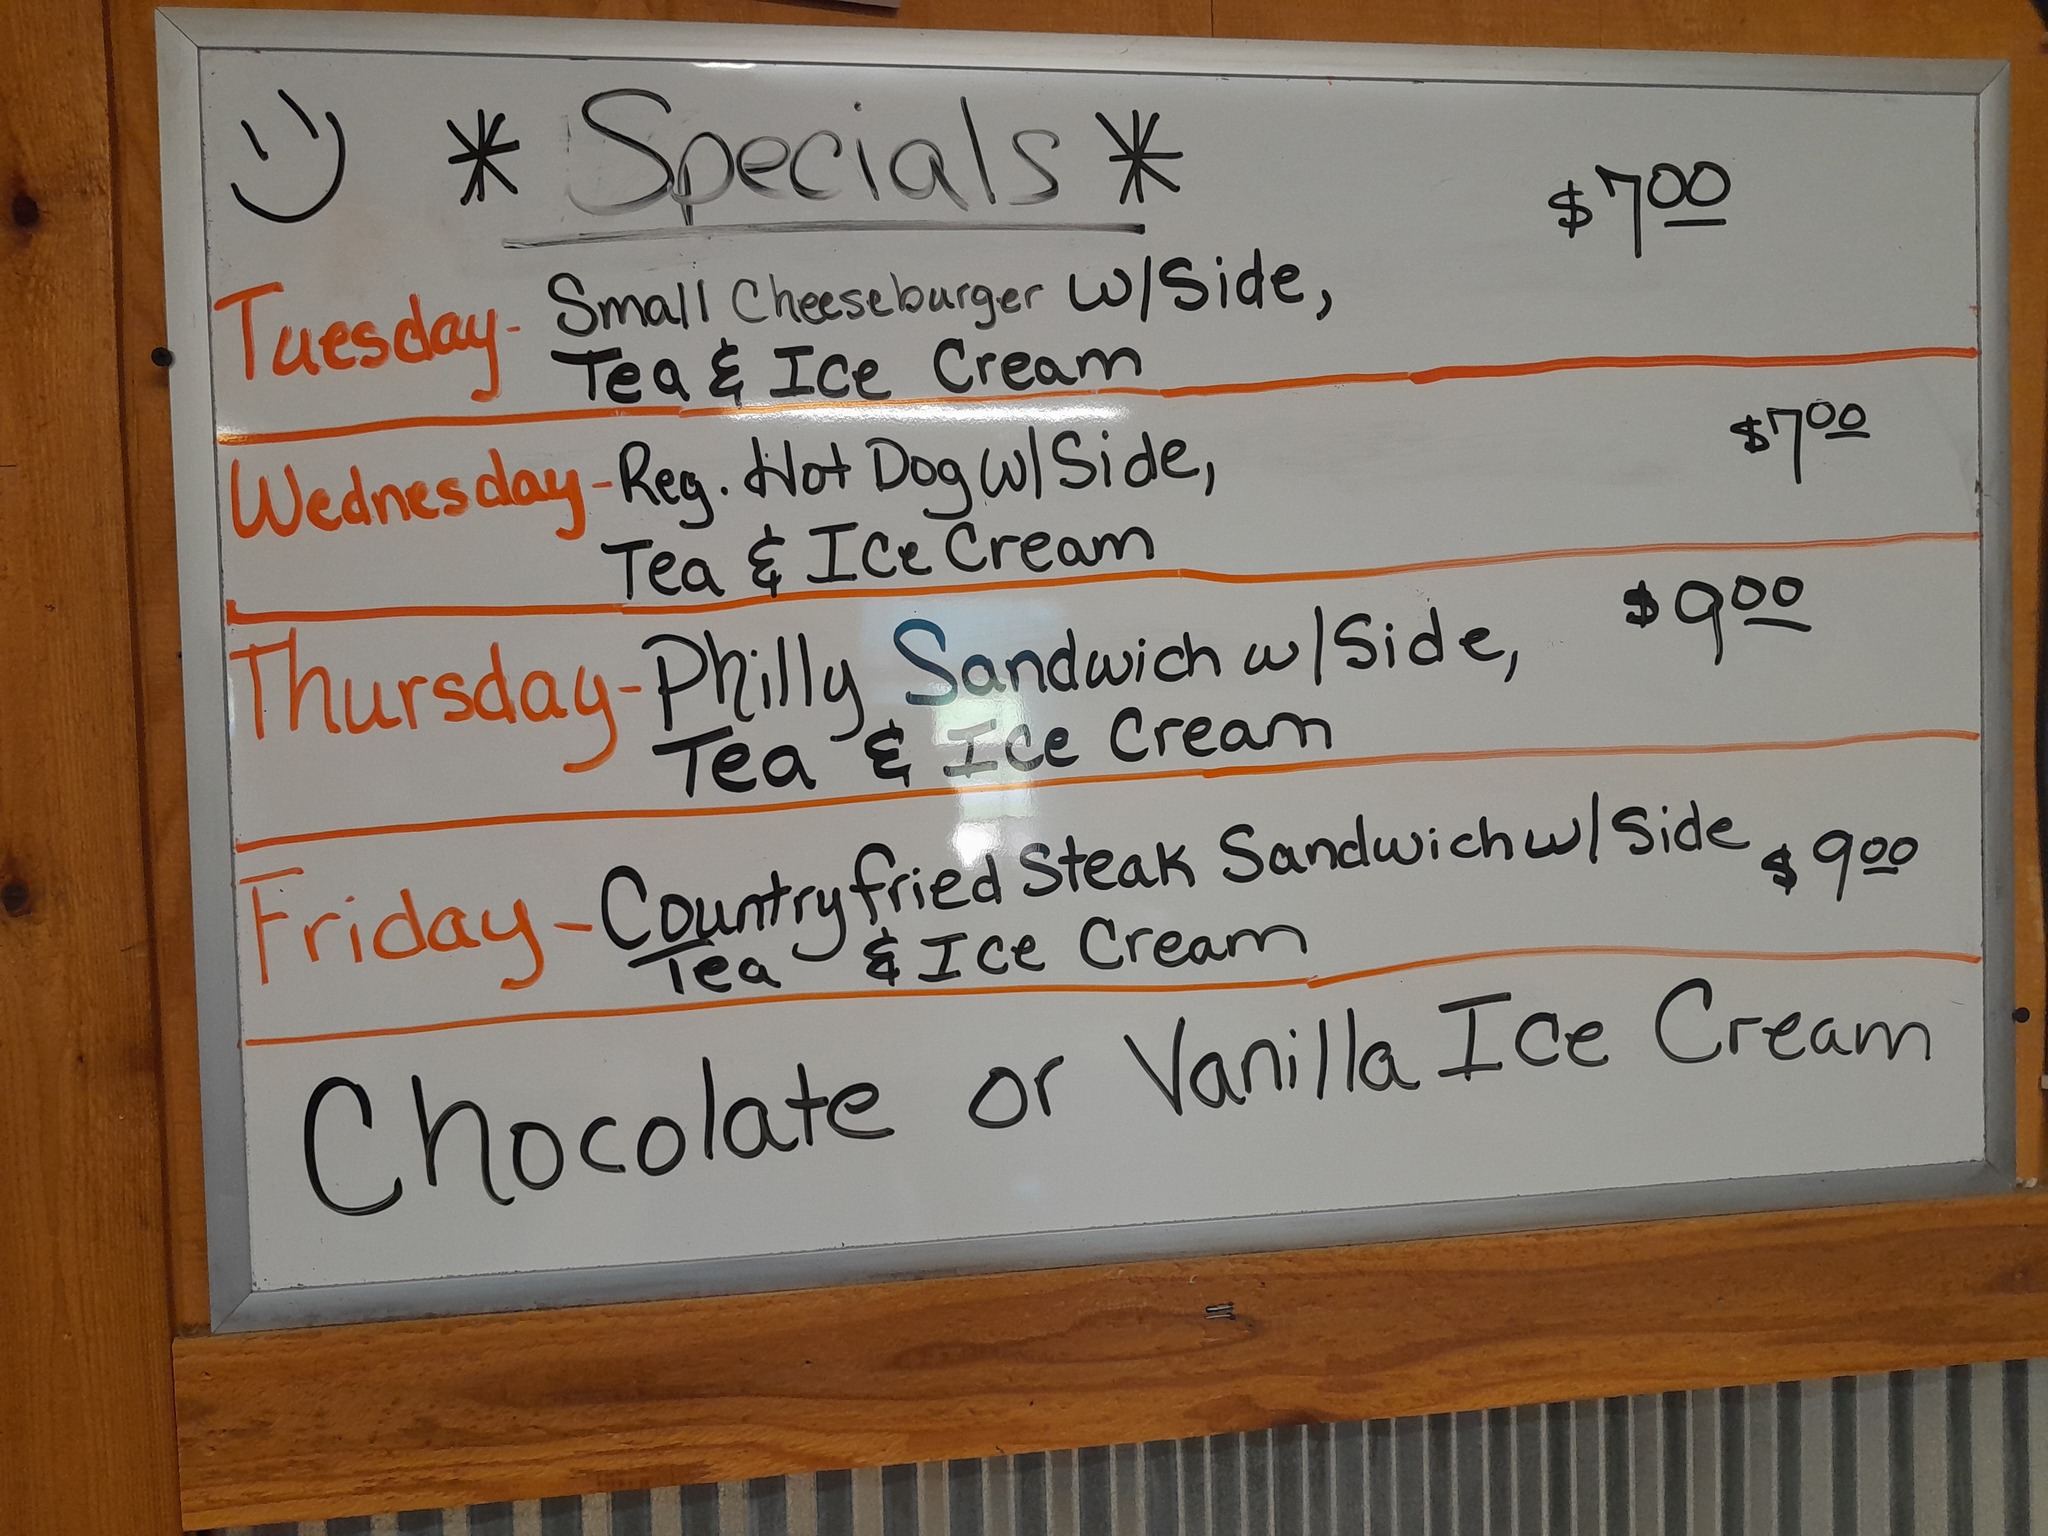 * Specials *
$7.00
Tuesday- Small Cheeseburger w/Side,
Tea & Ice Cream
$7.00
Wednesday-Reg. Hot Dog w/Side,
Tea & Ice Cream
$9.00
Thursday-Philly Sandwich w/Side,
Tea & Ice Cream
Friday-Countryfried Steak Sandwich w/Side $9.00
Tea & Ice Cream
Chocolate or Vanilla Ice Cream